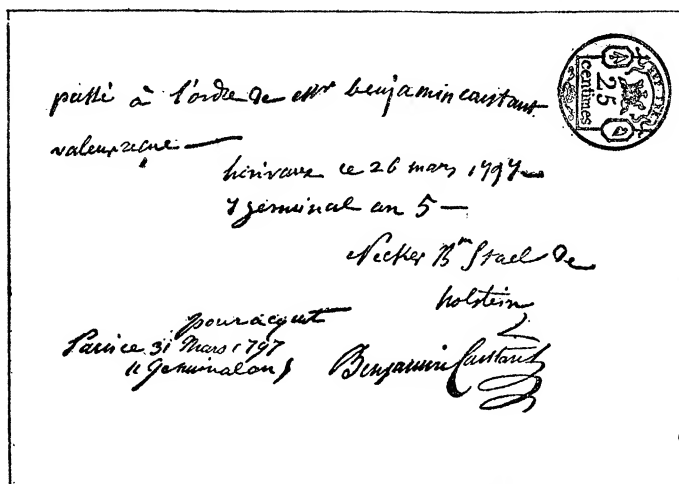 passé à l'ordre de Mr benjamin constant
valeur reçue
hérivaux ce 26 mars 1797
7 germinal an 5
Necker Bne Stael de
holstein
pour acquit
Paris ce 31 Mars 1797
11 Germinal an 5
Benjamin Constant
25
centimes